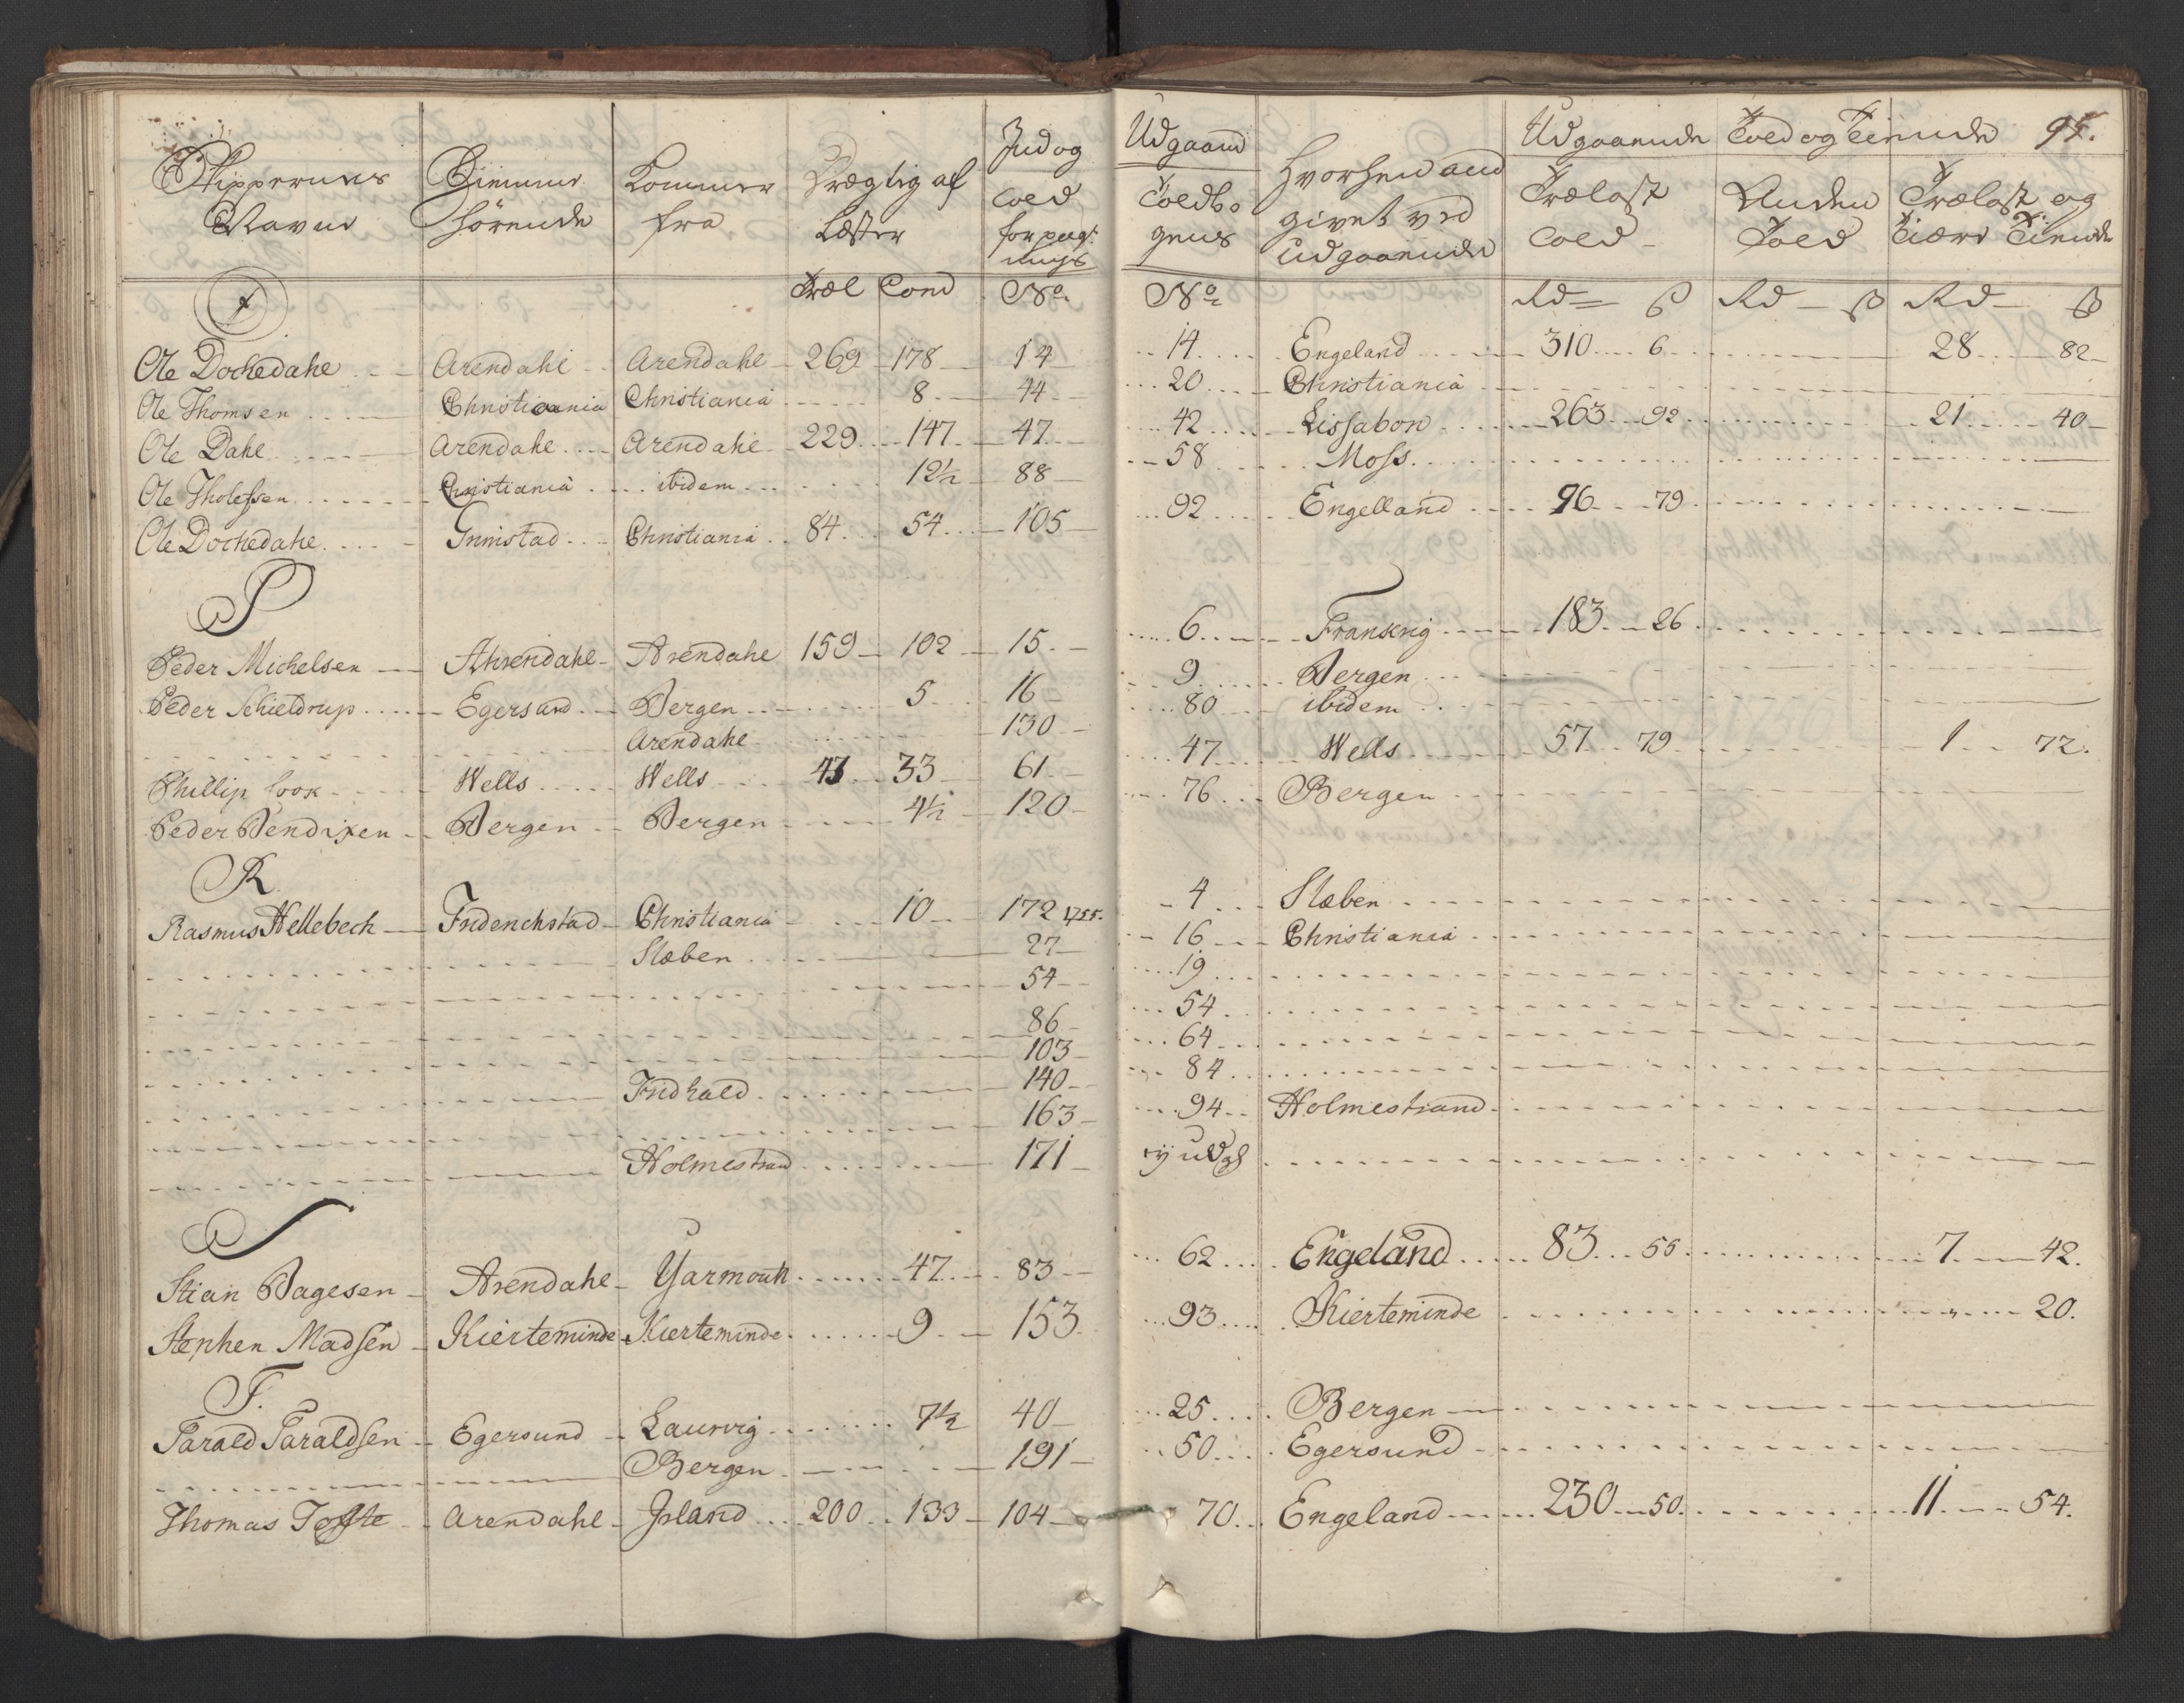 Skippernes Navne | Hiemme hørende | Kommer fra | Drægtig af Læster | Ind og Told
Træl | Cond | No
Udgaaend Toldbogens | Hvorhen and givet ved Udgaaende | Udgaaende Told og Tiende 95.
Trælast Told | Anden Told | Trælast og Tiære Tiende
No | Rd ß | Rd ß | Rd ß
Ole Dochedahe | Arendahl | Arendahe | 269 | 178 | 14 | 14 | Engeland | 310 6 | 28 82
Ole Thomsen | Christiania | Christiania | 8 | 44 | 20 | Christiania
Ole Dahl | Arendahe | Arendahe | 229 | 147 | 47 | 42 | Lissabon | 263 92 | 21 40
Ole Tholefsen | Christiania | ibidem | 12½ | 88 | 58 | Moss
Ole Dochedahe | Grimstad | Christiania | 84 | 54 | 105 | 92 | Engelland | 96 79
P
Peder Michelsen | Ahrendahl | Arendahe | 159 | 102 | 15 | 6 | Frankrig | 183 26
Peder Schieldrup | Egersund | Bergen | 5 | 16 | 9 | Bergen
Arendahe | 130 | 80 | ibidem
Phillip Cook | Wells | Wells | 43 | 33 | 61 | 47 | Wells | 57 79 | 1 72.
Peder Bendixen | Bergen | Bergen | 4½ | 120 | 76 | Bergen
R
Rasmus Hellebech | Friderichstad | Christiania | 10 | 172 1755. | 4 | Slæben
Slæben | 27 | 16 | Christiania
54 | 19
86 | 54
103 | 64
Fridhald | 140 | 84
163 | 94 | Holmestrand
Holmestrand | 171 | ej udgl
S
Stian Bagesen | Arendahe | Yarmouth | 47 | 83 | 62 | Engeland | 83 55 | 7 42.
Stephen Madsen | Kierteminde | Kierteminde | 9 | 153 | 93 | Kierteminde | " 20.
T.
Tarald Taraldsen | Egersund | Laurvig | 7½ | 40 | 25 | Bergen
Bergen | 191 | 50 | Egersund
Thomas Tofte | Arendahl | Island | 200 | 133 | 104 | 70 | Engeland | 230 50 | 11 54.